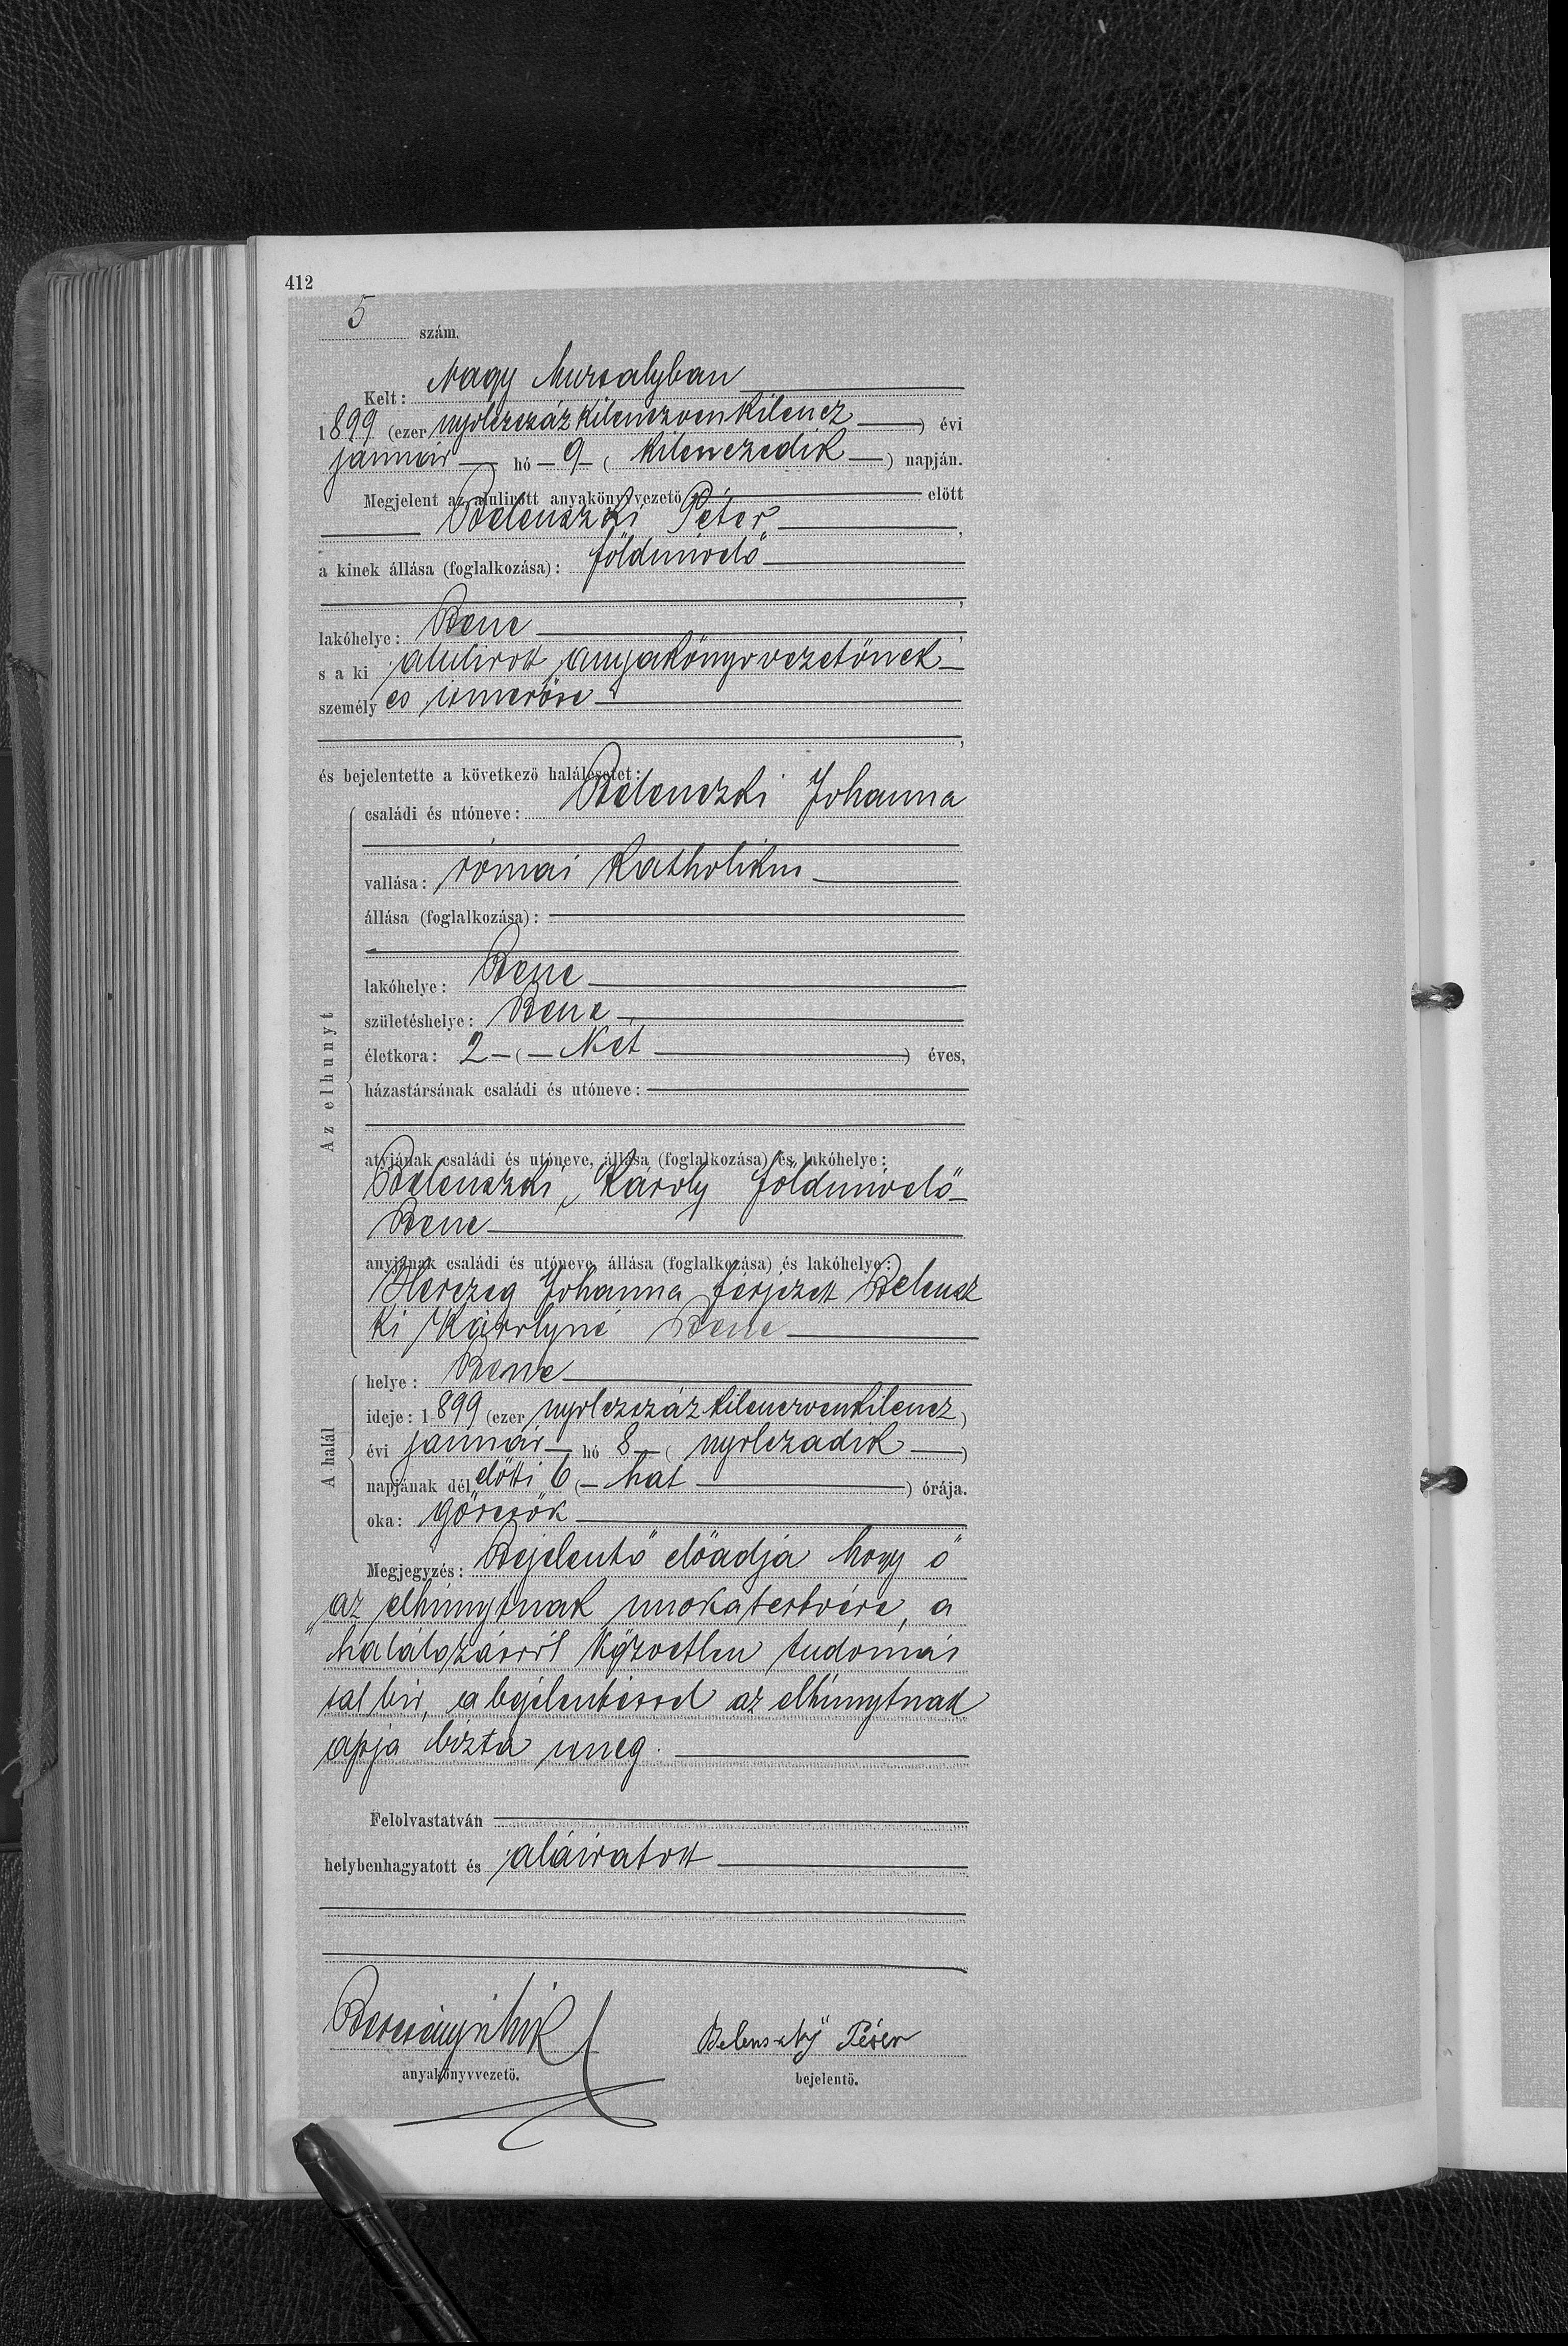 412
5 szám.
Kelt: Nagy Muzsalyban
1899 (ezer nyolczszázkilenczvenkilencz) évi
január hó 9 (kilenczedik) napján.
Megjelent az alulirott anyakönyvvezető előtt
Belenszki Péter,
a kinek állása (foglalkozása): földmivelő
,
lakóhelye: Bene,
s a ki alulirott anyakönyvvezetőnek
személyes ismerőse
,
és bejelentette a következő halálesetet:
Az elhunyt
családi és utóneve: Belenczki Johanna
vallása: római katholikus
állása (foglalkozása):
lakóhelye: Bene
születéshelye: Bene
életkora: 2 (Két) éves,
házastársának családi és utóneve:
atyjának családi és utóneve, állása (foglalkozása) és lakóhelye:
Belenszki Károly földmivelő
Bene
anyjának családi és utóneve, állása (foglalkozása) és lakóhelye:
Herczeg Johanna férjezett Belensz
ki Károlyné Bene
A halál
helye: Bene
ideje: 1899 (ezer nyolczszázkilenczvenkilencz)
évi január hó 8 (nyolczadik)
napjának délelőtti 6 (hat) órája.
oka: görcsök
Megjegyzés: Bejelentő előadja hogy ő
az elhúnytnak unokatestvére, a
halálozásról közvetlen tudomás
sal bir, a bejelentéssel az elhúnytnak
apja bizta meg.
Felolvastatván
helybenhagyatott és aláiratott
Belenszky Péter
anyakönyvvezető. bejelentő.